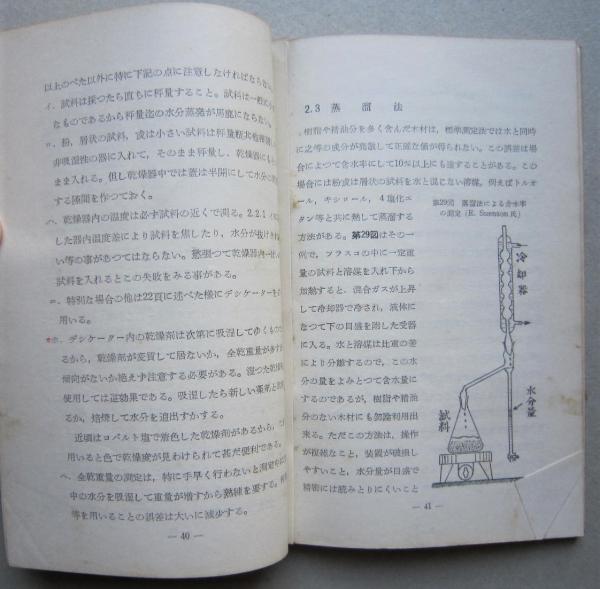 以上のべた以外に特に下記の点に注意しなければならない
イ．試料は採つたら直ちに秤量すること。試料は一般に小
なものであるから秤量迄の水分蒸発が馬鹿にならない。
ロ．粉，屑状の試料，或は小さい試料は秤量瓶其他
非吸湿性の器に入れて，そのまま秤量し，乾燥器にも
まま入れる。但し乾燥器中では蓋は半開にして水分の
する隙間を作つておく。
ハ．乾燥器内の温度は必ず試料の近くで測る。2.2.1 イに
した器内温度差により試料を焦したり，水分が抜け
い等の事があつてはならない。慾張つて乾燥器内一ぱい
試料を入れるとこの失敗をみる事がある。
ニ．特別な場合の他は22頁に述べた様にデシケーターを
用いる。
ホ．デシケーター内の乾燥剤は次第に吸湿してゆくもの
るから，乾燥剤が変質して居ないか，全乾重量が多す
傾向がないか絶えず注意する必要がある。湿つた乾燥
使用しては逆効果である。吸湿したら新しい薬剤と
るか，焙焼して水分を追出すかする。
近頃はコバルト塩で着色した乾燥剤があるから，こ
用いると色で乾燥度が見わけられて甚だ便利である。
ヘ．全乾重量の測定は，特に手早く行わないと測定中に
中の水分を吸湿して重量が増すから熟練を要する。
等を用いることの誤差は大いに減少する。
— 40 —
2.3 蒸溜法
樹脂や精油分を多く含んだ木材は，標準測定法では水と同時
に之等の成分が飛散して正確な値が得られない。この誤差は場
合によつて含水率にして10%以上にも達することがある。この
場合には粉或は屑状の試料を水と混じない溶媒，例えばトルオ
ール，キシロール，4塩化エ
タン等と共に熱して蒸溜する
方法がある。第29図はその一
例で，フラスコの中に一定重
量の試料と溶媒を入れ下から
加熱すると，混合ガスが上昇
して冷却器で冷され，液体に
なつて下の目盛を附した受器
に入る。水と溶媒は比重の差
により分離するので，この水
分の量をよみとつて含水量に
するのであるが，樹脂や精油
分のない木材にも勿論利用出
来る。ただこの方法は，操作
が複雑なこと，装置が破損し
やすいこと，水分量が目盛で
精密には読みとりにくいこと
第29図 蒸溜法による含水率
の測定 (E. Suenson氏)
冷却器
水分量
試料
— 41 —